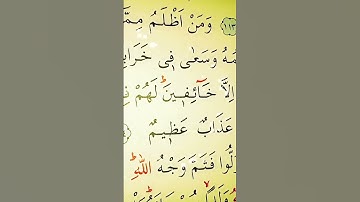 ١١٣ وَمَنْ أَظْلَمُ مِمَّ
مُهُ وَسَعٰى فِى خَرَابِ
اِلَّا خَآئِفِينَ ۗ لَهُمْ فِ
عَذَابٌ عَظِيمٌ
لُّوا فَثَمَّ وَجْهُ اللّٰهِ ۗ